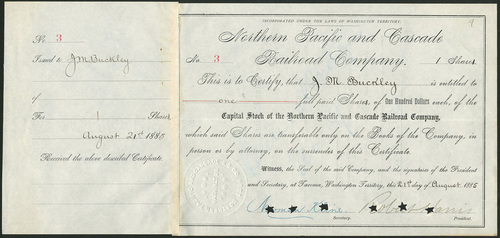 No. 3
Issued to J. M. Buckley
of
For 1 Shares
August 21st 1885
Received the above described Certificate.
INCORPORATED UNDER THE LAWS OF WASHINGTON TERRITORY.
Northern Pacific and Cascade
No. 3 Railroad Company. 1 Shares
This is to Certify, that J. M. Buckley is entitled to
one full paid Shares of One Hundred Dollars each, of the
Capital Stock of the Northern Pacific and Cascade Railroad Company,
which said Shares are transferable only on the Books of the Company, in
person or by attorney, on the surrender of this Certificate.
Witness, the Seal of the said Company, and the signatures of the President
and Secretary, at Tacoma, Washington Territory, this 21st day of August 1885
Robert Harris
Secretary. President.